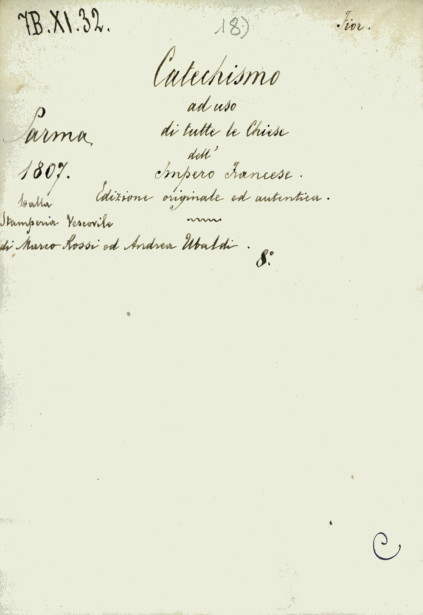 7B.XI.32.
18)
Fior.
Catechismo
ad uso
di tutte le Chiese
dell'
Impero Francese.
Edizione originale ed autentica.
Parma,
1807.
Dalla
Stamperia Vescovile
di Marco Rossi ed Andrea Ubaldi.
8°
C